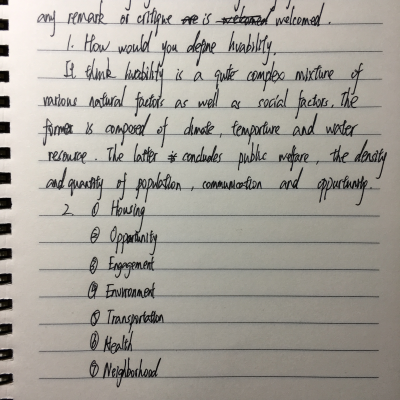 any remark or critique are is welcomed welcomed.
1. How would you define livability.
It think livability is a quite complex mixture of
various natural factors as well as social factors. The
former is composed of climate, temporture and water
resource. The latter is concludes public welfare, the density
and quantity of population, communication and oppurtunity.
2. ① Housing
② Opportunity
③ Engagement
④ Environment
⑤ Transportation
⑥ Health
⑦ Neighborhood